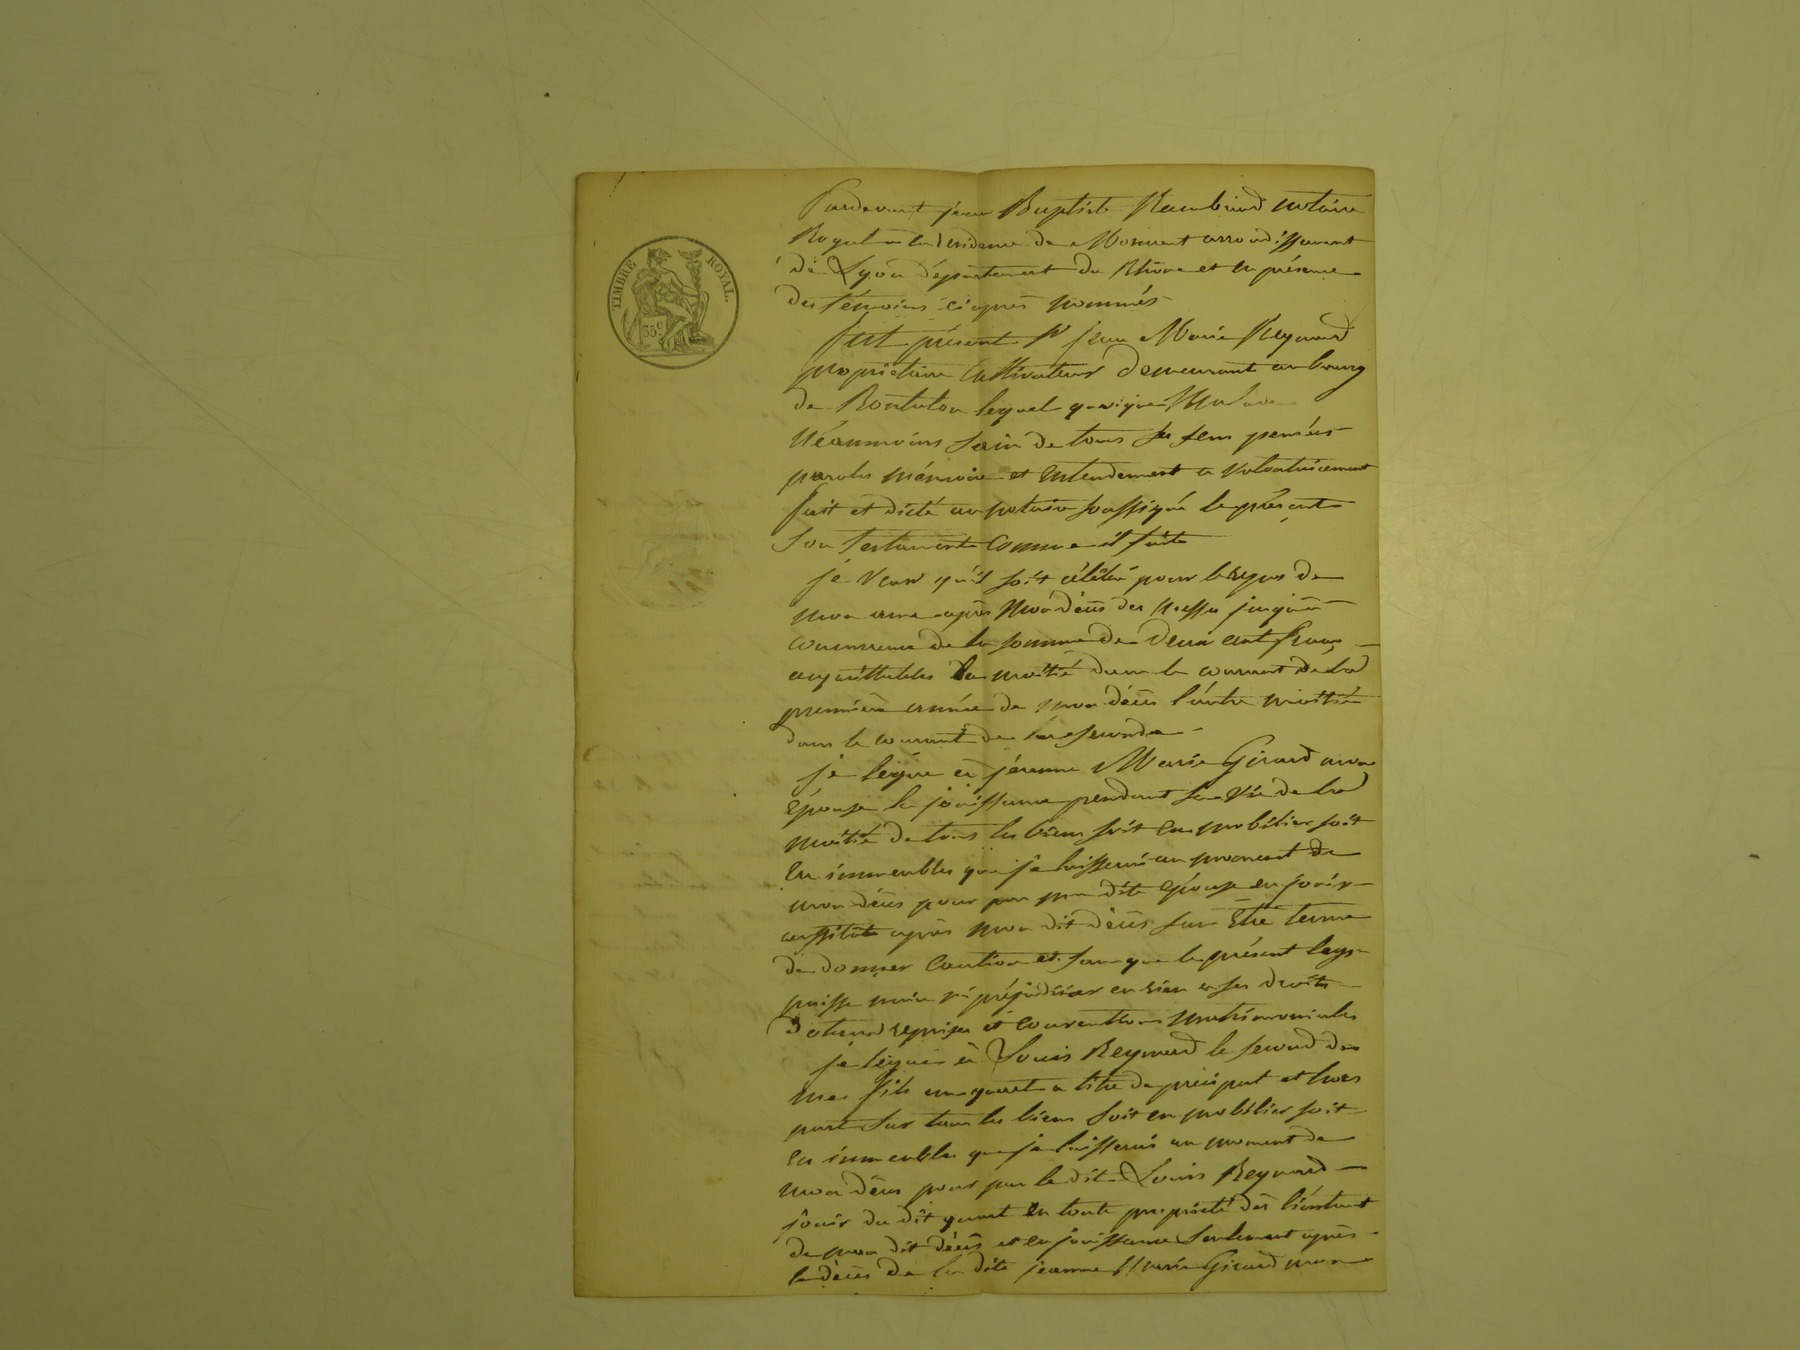 TIMBRE ROYAL.
35 c.
Pardevant jean Baptiste Rambaud notaire
Royal a la residence de Mornant arrondissement
de Lyon département du Rhône et en présence
des témoins ci après nommés
fut présent Sr jean Marie Reynard
propriétaire cultivateur demeurant au bourg
de Rontalon lequel quoique Malade
Néanmoins sain de tous ses sens pensées
paroles mémoire et entendement a volontairement
fait et dicté au notaire soussigné le présent
son testament comme il suit
je veux qu'il soit célébré pour le repos de
mon ame après mon décès des messes jusqu'à
concurrence de la somme de deux cent francs
acquittables la moitié dans le courant de la
première année de mon décès l'autre moitié
dans le courant de la seconde
je lègue à jeanne Marie Girard mon
épouse la jouissance pendant sa vie de la
moitié de tous les biens soit en mobilier soit
en immeubles que je laisserai au moment de
mon décès pour par ma dite épouse en jouir
aussitôt après mon dit décès sans être tenue
de donner caution et sans que le présent legs
puisse nuire ni préjudicier en rien a ses droits
dotaux reprises et conventions matrimoniales
je lègue à Louis Reynard le second de
mes fils un quart a titre de préciput et hors
part sur tous les biens soit en mobilier soit
en immeubles que je laisserai au moment de
mon décès pour par le dit Louis Reynard
jouir du dit quart en toute propriété dès l'instant
de mon dit décès et en jouissance seulement après
le décès de la dite jeanne Marie Girard mon